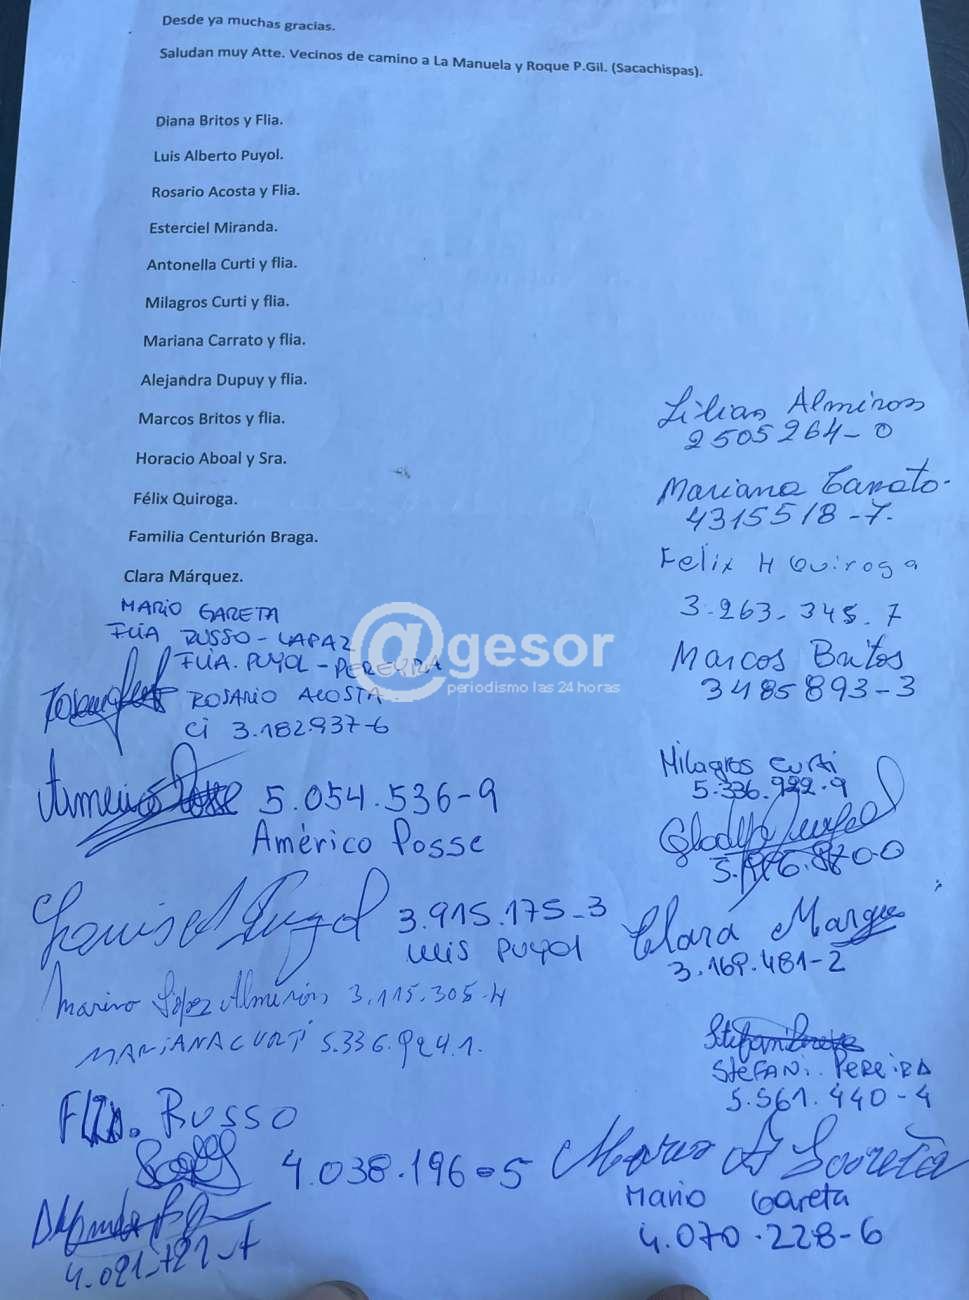 Desde ya muchas gracias.
Saludan muy Atte. Vecinos de camino a La Manuela y Roque P.Gil. (Sacachispas).
Diana Britos y Flia.
Luis Alberto Puyol.
Rosario Acosta y Flia.
Esterciel Miranda.
Antonella Curti y flia.
Milagros Curti y flia.
Mariana Carrato y flia.
Alejandra Dupuy y flia.
Marcos Britos y flia.
Horacio Aboal y Sra.
Félix Quiroga.
Familia Centurión Braga.
Clara Márquez.
MARIO GARETA
FLIA RUSSO-LAPAZ
FLIA. PUYOL-PEREYRA
ROSARIO ACOSTA
CI 3.182.937-6
@gesor
periodismo las 24 horas
Américo Posse 5.054.536-9
Américo Posse
3.915.175-3
Luis Puyol
Marino López Almirón 3.115.305-4
MARIANA CURTI 5.336.924.1.
FLIA. RUSSO
4.038.196-5
Lilian Almiron
2505264-0
Mariana Carrato.
4315518-7.
Felix H Quiroga
3.263.345.7
Marcos Britos
3485893-3
Milagros Curti
5.336.922.9
Clara Marque
3.169.481-2
STEFANI. PEREIRA
5.561.440-4
Mario Gareta
4.070.228-6